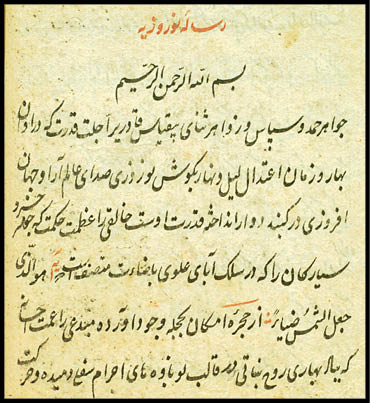 رساله نوروزیه
بسم الله الرحمن الرحیم
جواهر حمد و سپاس و زواهر ثنای بیقیاس قادریرا جلت قدرته که در اوان
بهار و زمان اعتدال لیل و نهار بگوش نوروزی صدای عالم آرا و جهان
افروزی در گنبد دوار انداخته قدرت اوست خالقی را عظمت حکمته که جواهر
سیارگان را که در سلک آبای علوی باضاءت متصفند هو الذی
جعل الشمس ضیاء از حجره امکان بحجله وجود آورده مبدعی را عمت
که بباد بهاری روح نباتی در قالب نوباوه های اجرام سفلی دمیده و